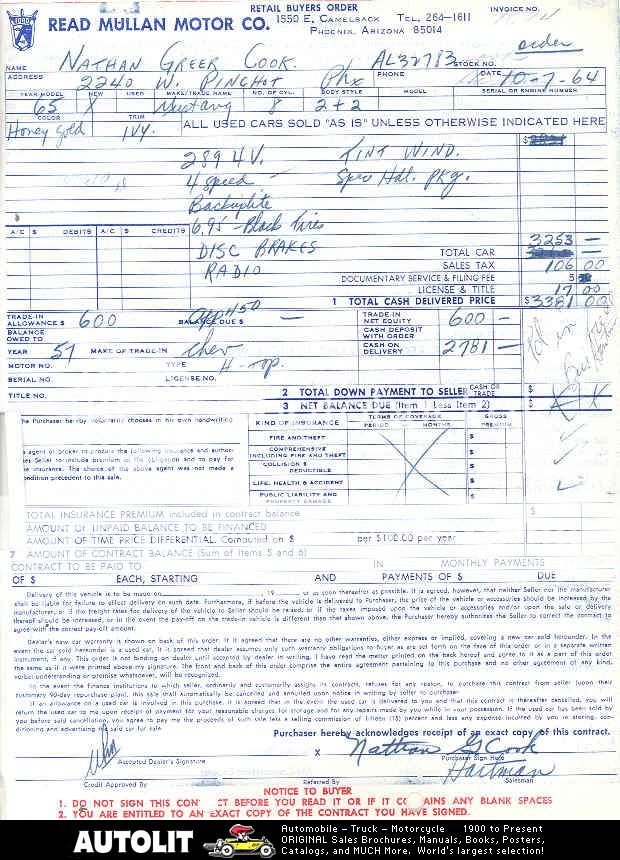 RETAIL BUYERS ORDER
INVOICE NO.
READ MULLAN MOTOR CO. 1550 E. CAMELBACK TEL. 264-1611
PHOENIX, ARIZONA 85014
order
NAME Nathan Greer Cook. AL32783 STOCK NO.
ADDRESS 2240 W. Pinchot Phx PHONE DATE 10-7-64
YEAR MODEL NEW USED MAKE/TRADE NAME NO. OF CYL. BODY STYLE MODEL SERIAL OR ENGINE NUMBER
65 X Mustang 8 2+2
COLOR TRIM
Honey Gold IVY. ALL USED CARS SOLD "AS IS" UNLESS OTHERWISE INDICATED HERE
$
289 4V. TINT WIND.
4 speed - Spec Hdl. Pkg.
Backuplite
A/C $ DEBITS A/C $ CREDITS 6.95 - Black Tires
DISC BRAKES 3253 -
TOTAL CAR
RADIO SALES TAX 106 00
DOCUMENTARY SERVICE & FILING FEE 5
LICENSE & TITLE 17 00
1 TOTAL CASH DELIVERED PRICE $3381 00
TRADE-IN ALLOWANCE $ 600 BALANCE DUE $ - TRADE-IN NET EQUITY 600 -
BALANCE OWED TO CASH DEPOSIT WITH ORDER
YEAR 57 MAKE OF TRADE-IN Chev CASH ON DELIVERY 2781 -
MOTOR NO. TYPE H-Top.
SERIAL NO. LICENSE NO.
TITLE NO. 2 TOTAL DOWN PAYMENT TO SELLER CASH OR TRADE $
3 NET BALANCE DUE (Item 1 Less Item 2) $
he Purchaser hereby voluntarily chooses in his own handwriting
KIND OF INSURANCE TERMS OF COVERAGE GROSS
PERIOD MONTHS PREMIUM
FIRE AND THEFT $
s agent or broker to procure the following insurance and author-
COMPREHENSIVE INCLUDING FIRE AND THEFT $
es Seller to include premium in the obligation and to pay for
he insurance. The choice of the above agent was not made a
COLLISION $ DEDUCTIBLE $
ondition precedent to this sale.
LIFE, HEALTH & ACCIDENT $
PUBLIC LIABILITY AND PROPERTY DAMAGE $
TOTAL INSURANCE PREMIUM included in contract balance $
AMOUNT OF UNPAID BALANCE TO BE FINANCED
AMOUNT OF TIME PRICE DIFFERENTIAL. Computed on $ per $100.00 per year
7 AMOUNT OF CONTRACT BALANCE (Sum of Items 5 and 6)
CONTRACT TO BE PAID TO IN MONTHLY PAYMENTS
OF $ EACH, STARTING AND PAYMENTS OF $ DUE
Delivery of this vehicle is to be made on 19 or as soon thereafter as possible. It is agreed, however, that neither Seller nor the manufacturer
shall be liable for failure to effect delivery on such date. Furthermore, if before the vehicle is delivered to Purchaser, the price of the vehicle or accessories should be increased by the
manufacturer, or if the freight rates for delivery of the vehicle to Seller should be raised, or if the taxes imposed upon the vehicle or accessories and/or upon the sale or delivery
thereof should be increased, or in the event the pay-off on the trade-in vehicle is different than that shown above, the Purchaser hereby authorizes the Seller to correct the contract to
agree with the correct pay-off amount.
Dealer's new car warranty is shown on back of this order. It is agreed that there are no other warranties, either express or implied, covering a new car sold hereunder. In the
event the car sold hereunder is a used car, it is agreed that dealer assumes only such warranty obligations to buyer as are set forth on the face of this order or in a separate written
instrument, if any. This order is not binding on dealer until accepted by dealer in writing. I have read the matter printed on the back hereof and agree to it as a part of this order
the same as if it were printed above my signature. The front and back of this order comprise the entire agreement pertaining to this purchase and no other agreement of any kind,
verbal understanding or promise whatsoever, will be recognized.
In the event the finance institutions to which seller, ordinarily and customarily assigns its contract, refuses for any reason, to purchase this contract from seller (upon their
customary 90-day repurchase plan), this sale shall automatically be cancelled and annulled upon notice in writing by seller to purchaser
If an allowance on a used car is involved in this purchase, it is agreed that in the event the used car is delivered to you and that this contract is thereafter cancelled, you will
return the used car to me upon receipt of payment for your reasonable charges for storage and for any repairs made by you while in your possession. If the used car has been sold by
you before said cancellation, you agree to pay me the proceeds of such sale less a selling commission of fifteen (15) percent and less any expense incurred by you in storing, con-
ditioning and advertising the said car for sale.
Purchaser hereby acknowledges receipt of an exact copy of this contract.
X Nathan G Cook
Accepted Dealer's Signature Purchaser Sign Here
Hartman
Credit Approved By Referred By Salesman
NOTICE TO BUYER
1. DO NOT SIGN THIS CON CT BEFORE YOU READ IT OR IF IT CO AINS ANY BLANK SPACES
2. YOU ARE ENTITLED TO AN EXACT COPY OF THE CONTRACT YOU HAVE SIGNED.
AUTOLIT
Automobile - Truck - Motorcycle 1900 to Present
ORIGINAL Sales Brochures, Manuals, Books, Posters,
Catalogs, and MUCH More. World's largest selection!